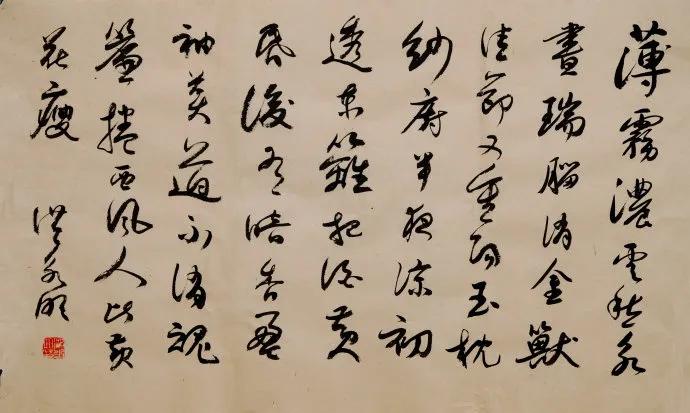 薄霧濃雲愁永
晝瑞腦消金獸
佳節又重陽玉枕
紗廚半夜涼初
透東籬把酒黃
昏後有暗香盈
袖莫道不消魂
簾捲西風人比黃
花瘦